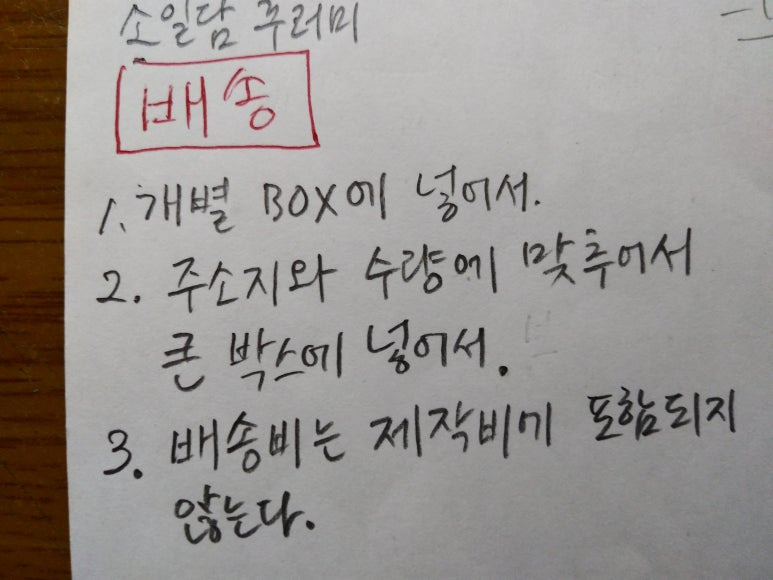 소일담 꾸러미
배송
1. 개별 BOX에 넣어서.
2. 주소지와 수량에 맞추어서
큰 박스에 넣어서.
3. 배송비는 제작비에 포함되지
않는다.